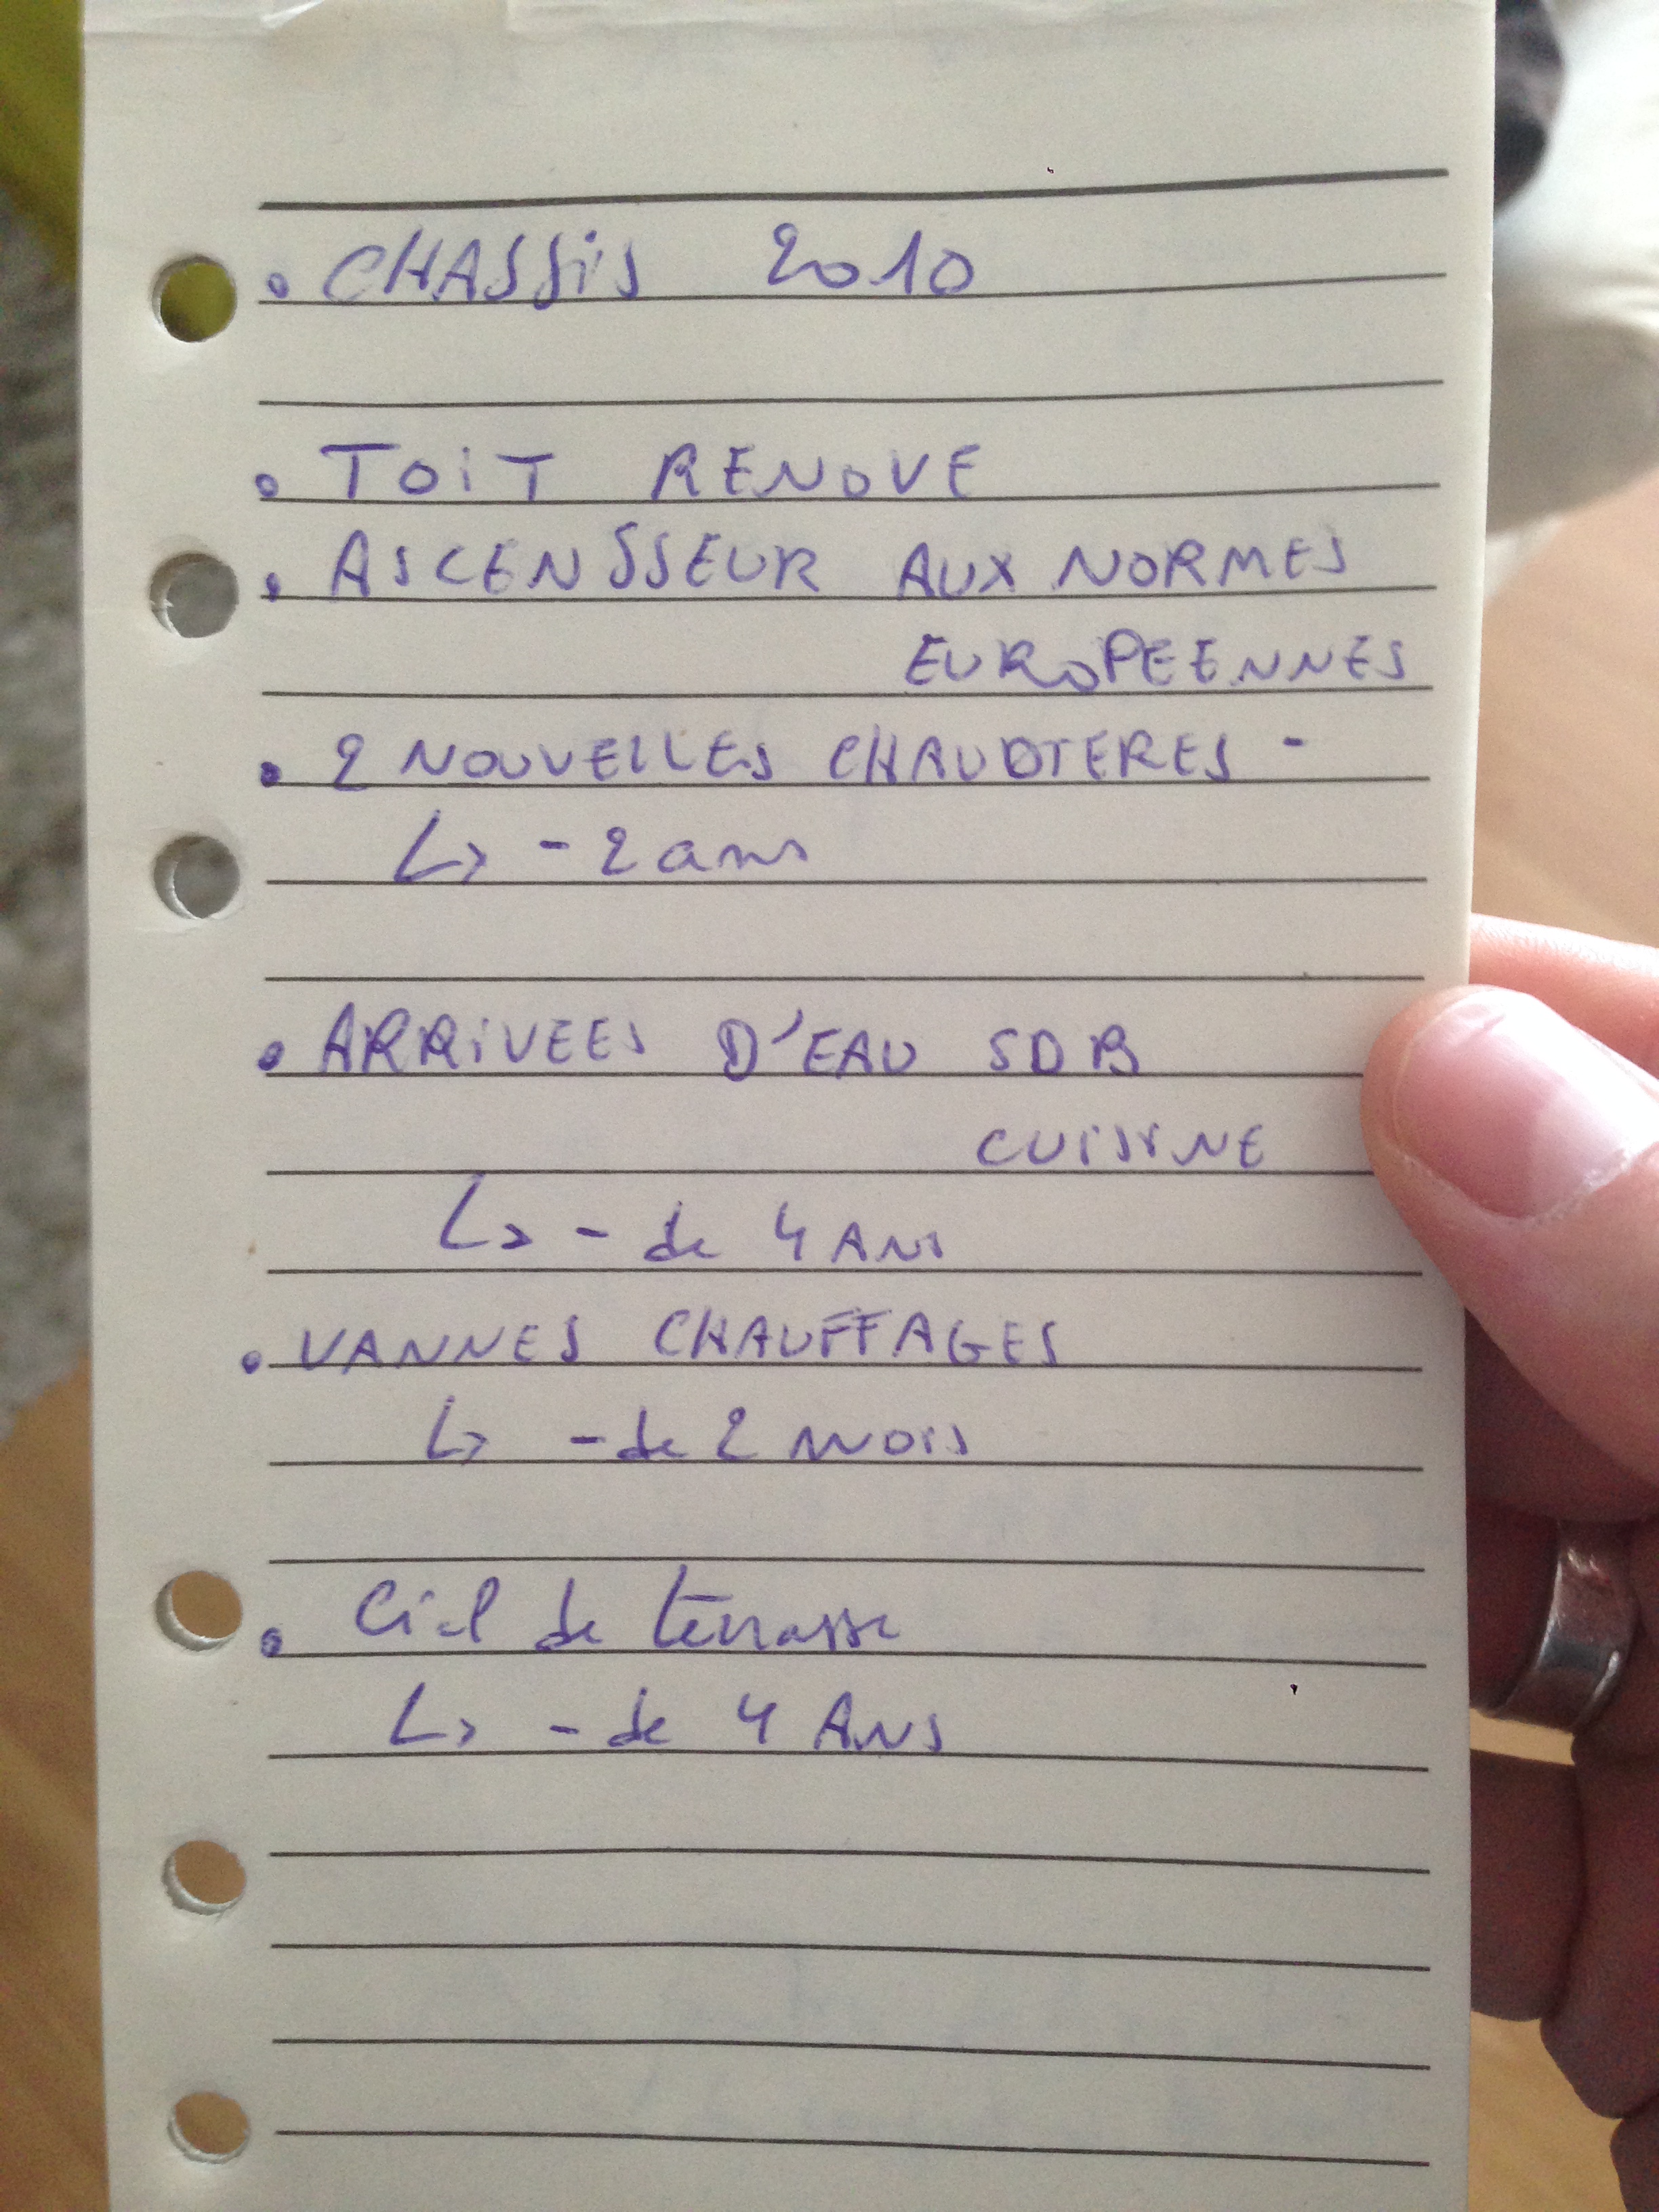 • CHASSiS 2010
• TOiT RENOVE
• ASCENSSEUR AUX NORMES
EUROPEENNES
• 2 NOUVELLES CHAUDIERES -
↳ - 2 ans
• ARRiVEES D'EAU SDB
CUISINE
↳ - de 4 ANS
• VANNES CHAUFFAGES
↳ - de 2 MOIS
• Ciel de terrasse
↳ - de 4 ANS